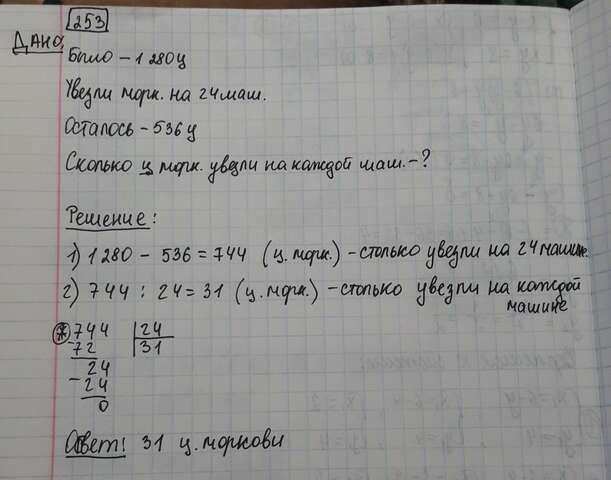 253
Дано:
Было – 1 280 ц
Увезли морк. на 24 маш.
Осталось – 536 ц
Сколько ц морк. увезли на каждой маш. – ?
Решение:
1) 1 280 – 536 = 744 (ц. морк.) – столько увезли на 24 машине.
2) 744 : 24 = 31 (ц. морк.) – столько увезли на каждой
машине
744 | 24
– 72 | 31
24
– 24
0
Ответ: 31 ц. моркови